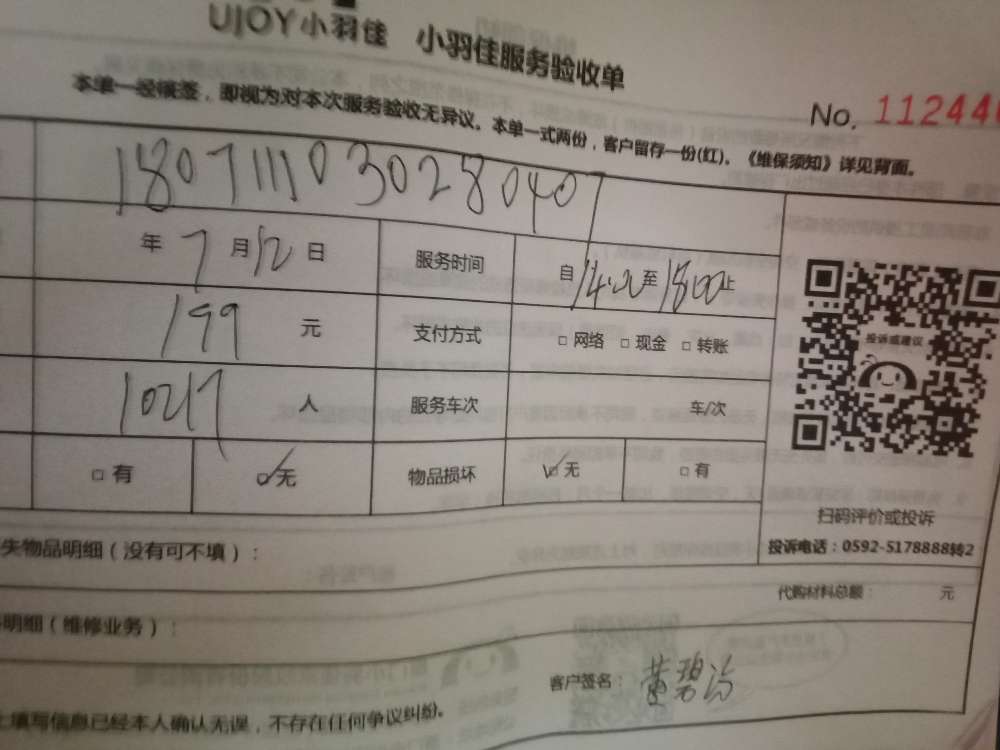 UJOY小羽佳 小羽佳服务验收单
本单一经缄签，即视为对本次服务验收无异议。本单一式两份，客户留存一份(红)。《维保须知》详见背面。
No. 112446
1807111030280407
年 7 月 12 日 服务时间 自 14:00 至 18:00 止
199 元 支付方式 □ 网络 □ 现金 □ 转账
10217 人 服务车次 车/次
□ 有 □ 无 物品损坏 □ 无 □ 有
投诉或建议
扫码评价或投诉
投诉电话：0592-5178888转2
失物品明细（没有可不填）：
代购材料总额： 元
明细（维修业务）：
客户签名：黄碧
填写信息已经本人确认无误，不存在任何争议纠纷。